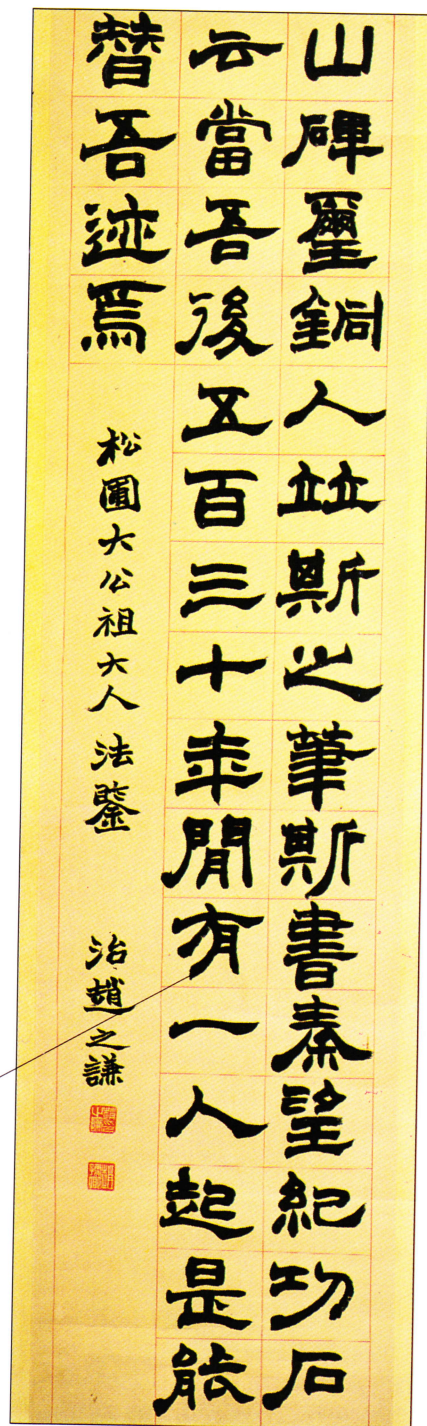 山碑璽銅人竝斯之筆斯書秦望紀功石
云當吾後五百三十年閒有一人起是能
替吾迹焉
松圃大公祖大人 法鑒 治趙之謙